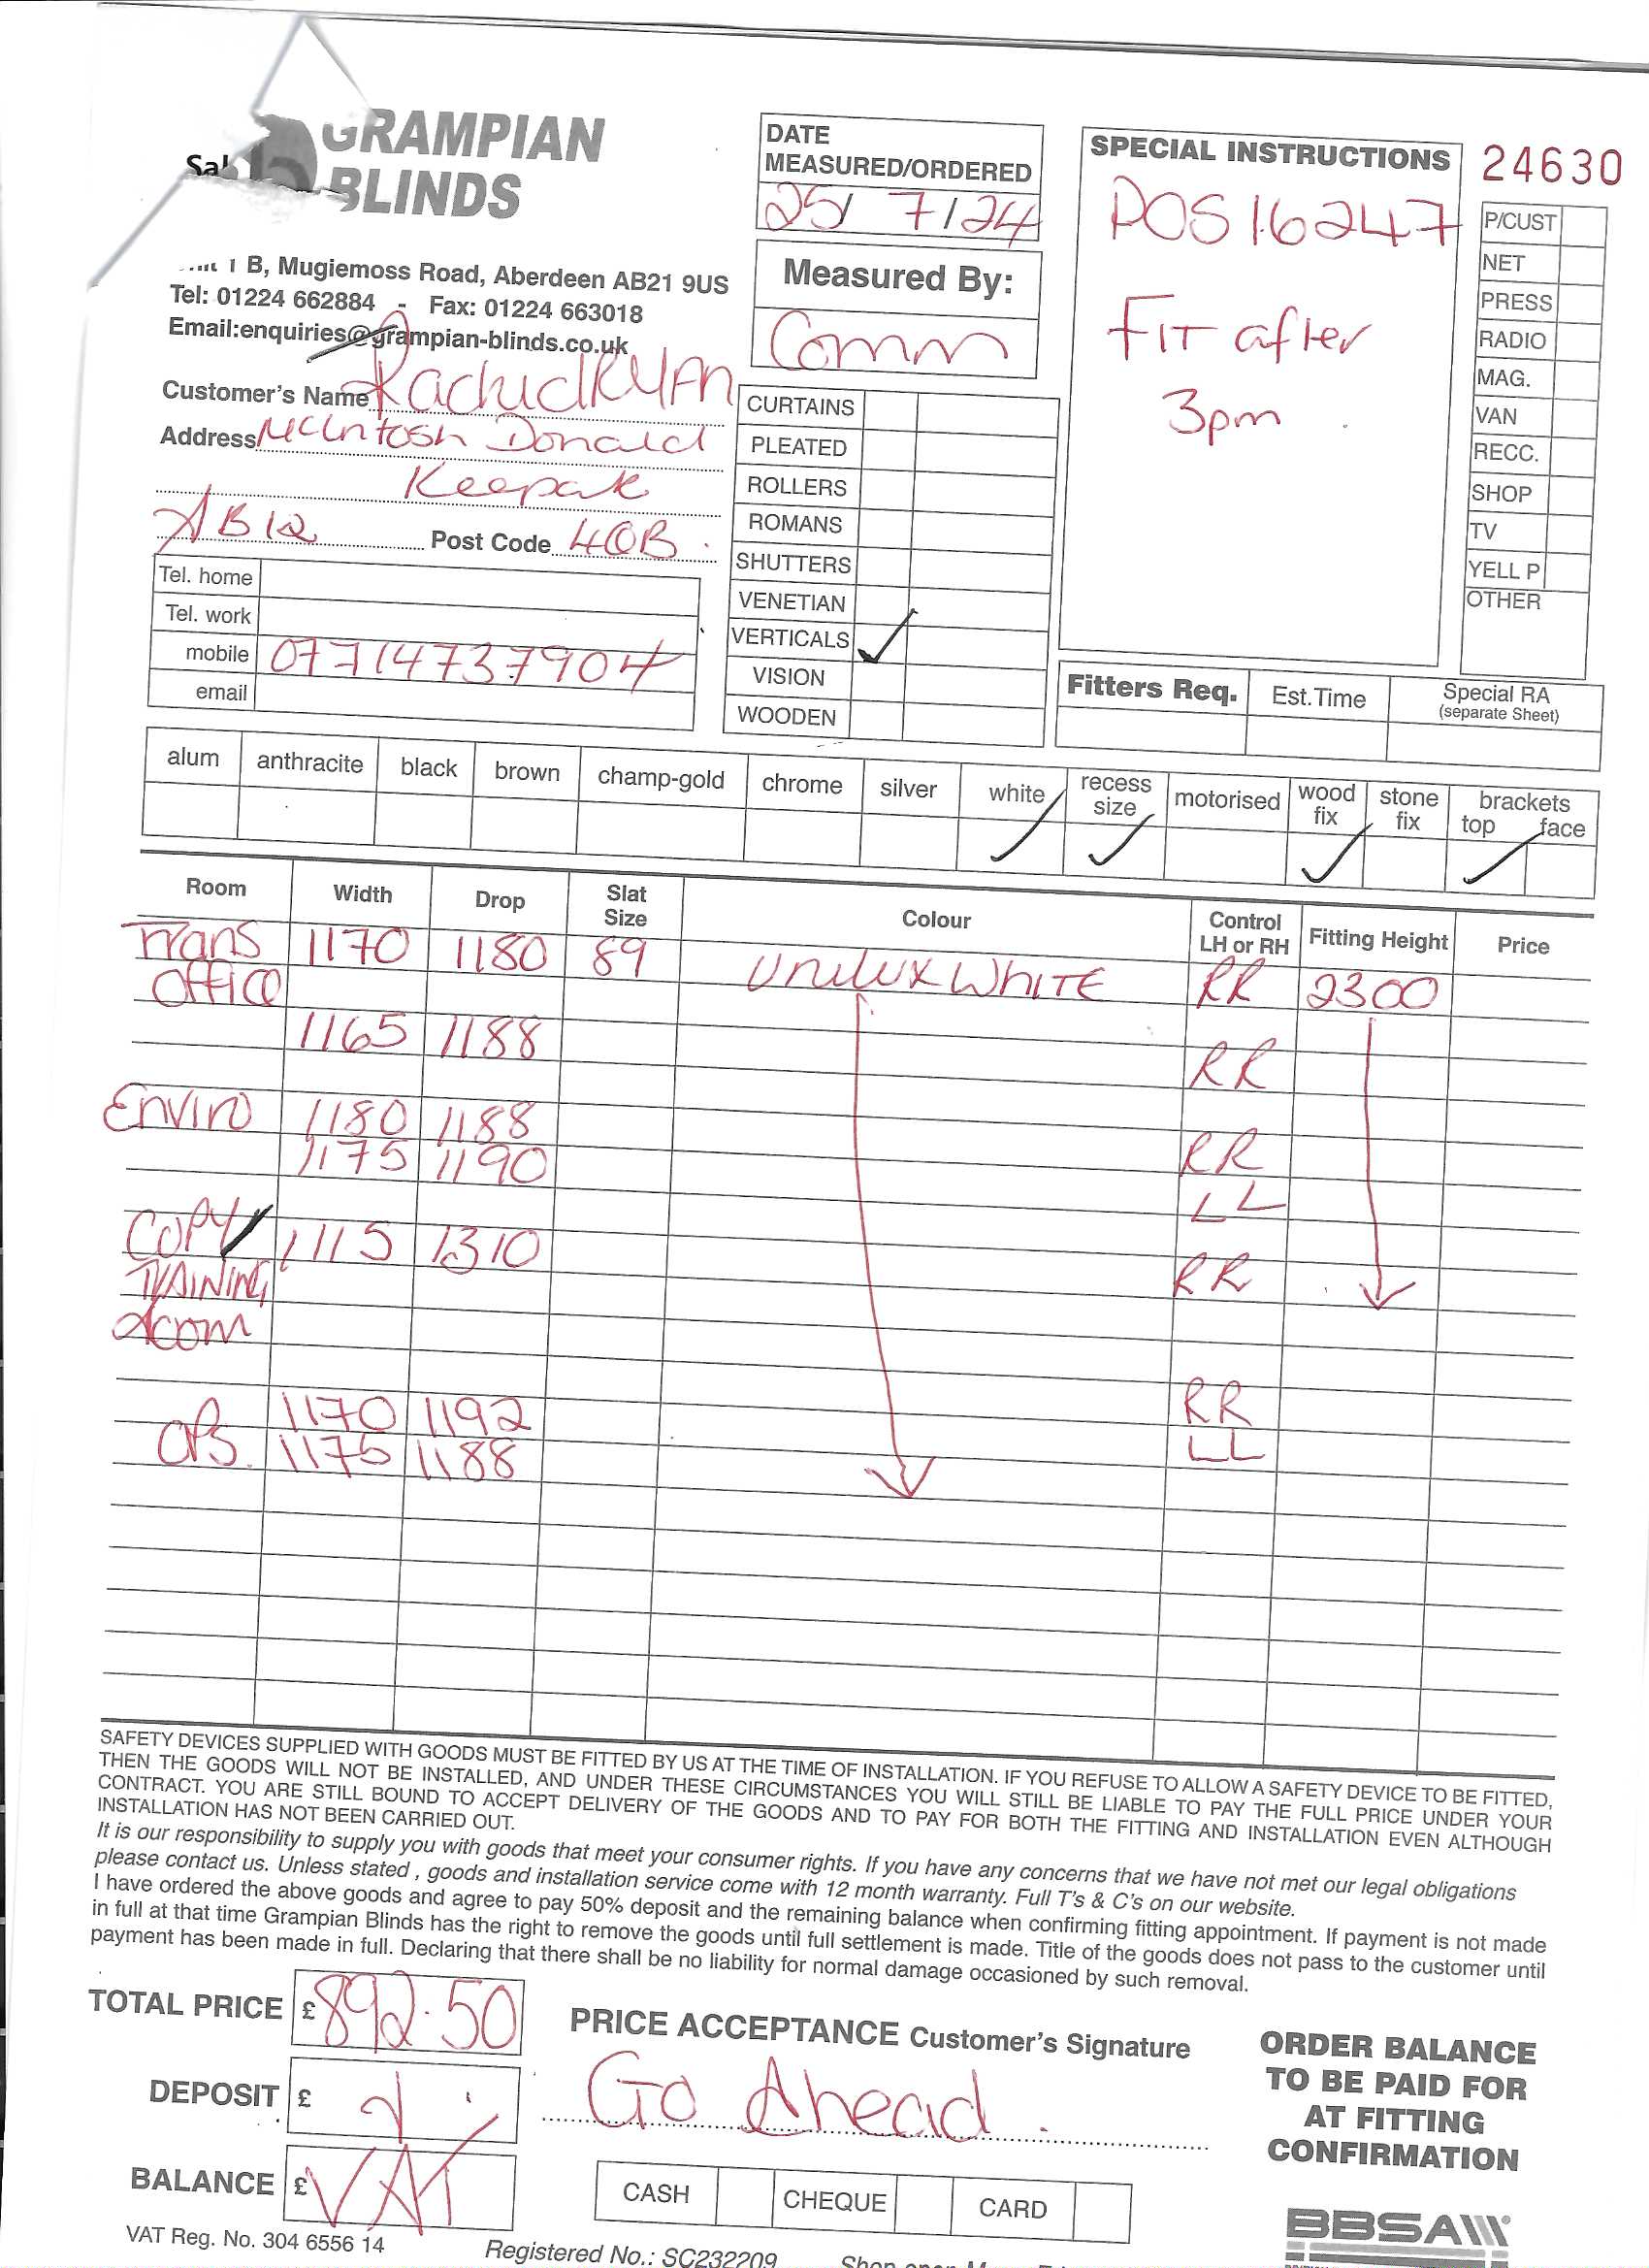 GRAMPIAN
BLINDS
Sal
1 B, Mugiemoss Road, Aberdeen AB21 9US
Tel: 01224 662884 - Fax: 01224 663018
Email:enquiries@grampian-blinds.co.uk
DATE
MEASURED/ORDERED
25/ 7/24
Measured By:
Comm
SPECIAL INSTRUCTIONS
POS16247
FIT after
3pm
24630
P/CUST
NET
PRESS
RADIO
MAG.
VAN
RECC.
SHOP
TV
YELL P
OTHER
Customer's Name
Address McIntosh Donald
Keepak
AB12 Post Code 4QB
Tel. home
Tel. work
mobile 07714737904
email
CURTAINS
PLEATED
ROLLERS
ROMANS
SHUTTERS
VENETIAN
VERTICALS ✓
VISION
WOODEN
Fitters Req. Est.Time Special RA
(separate Sheet)
alum anthracite black brown champ-gold chrome silver white ✓ recess size ✓ motorised wood fix ✓ stone fix brackets top ✓ face
Room Width Drop Slat Size Colour Control LH or RH Fitting Height Price
Trans 1170 1180 89 Unilux WHITE RR 2300
Office
1165 1188 RR
Enviro 1180 1188 RR
1175 1190 LL
Copy 1115 1310 RR
TRAINING
ROOM
1170 1192 RR
OPS. 1175 1188 LL
SAFETY DEVICES SUPPLIED WITH GOODS MUST BE FITTED BY US AT THE TIME OF INSTALLATION. IF YOU REFUSE TO ALLOW A SAFETY DEVICE TO BE FITTED,
THEN THE GOODS WILL NOT BE INSTALLED, AND UNDER THESE CIRCUMSTANCES YOU WILL STILL BE LIABLE TO PAY THE FULL PRICE UNDER YOUR
CONTRACT. YOU ARE STILL BOUND TO ACCEPT DELIVERY OF THE GOODS AND TO PAY FOR BOTH THE FITTING AND INSTALLATION EVEN ALTHOUGH
INSTALLATION HAS NOT BEEN CARRIED OUT.
It is our responsibility to supply you with goods that meet your consumer rights. If you have any concerns that we have not met our legal obligations
please contact us. Unless stated , goods and installation service come with 12 month warranty. Full T's & C's on our website.
I have ordered the above goods and agree to pay 50% deposit and the remaining balance when confirming fitting appointment. If payment is not made
in full at that time Grampian Blinds has the right to remove the goods until full settlement is made. Title of the goods does not pass to the customer until
payment has been made in full. Declaring that there shall be no liability for normal damage occasioned by such removal.
TOTAL PRICE £892.50
PRICE ACCEPTANCE Customer's Signature
Go Ahead.
DEPOSIT £
BALANCE £ VAT
CASH CHEQUE CARD
ORDER BALANCE
TO BE PAID FOR
AT FITTING
CONFIRMATION
VAT Reg. No. 304 6556 14
Registered No.: SC232209
BBSA